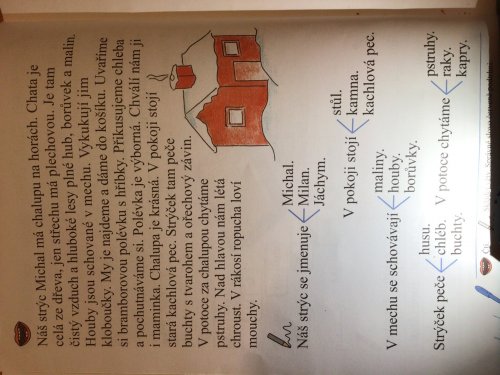 Náš strýc Michal má chalupu na horách. Chata je
celá ze dřeva, jen střechu má plechovou. Je tam
čistý vzduch a hluboké lesy plné hub, borůvek a malin.
Houby jsou schované v mechu. Vykukují jim
kloboučky. My je najdeme a dáme do košíku. Uvaříme
si bramborovou polévku s hříbky. Přikusujeme chleba
a pochutnáváme si. Polévka je výborná. Chválí nám ji
i maminka. Chalupa je krásná. V pokoji stojí
stará kachlová pec. Strýček tam peče
buchty s tvarohem a ořechový závin.
V potoce za chalupou chytáme
pstruhy. Nad hlavou nám létá
chroust. V rákosí ropucha loví
mouchy.
Náš strýc se jmenuje
Michal.
Milan.
Jáchym.
V pokoji stojí
stůl.
kamna.
kachlová pec.
V mechu se schovávají
maliny.
houby.
borůvky.
Strýček peče
husu.
chléb.
buchty.
V potoce chytáme
pstruhy.
raky.
kapry.